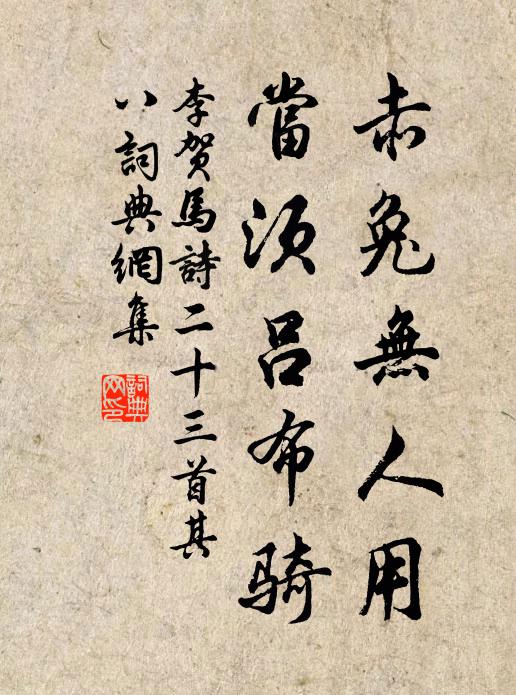 赤兔無人用
當須呂布騎
李賀馬詩二十三首其
八詞典網集
詞典
网印